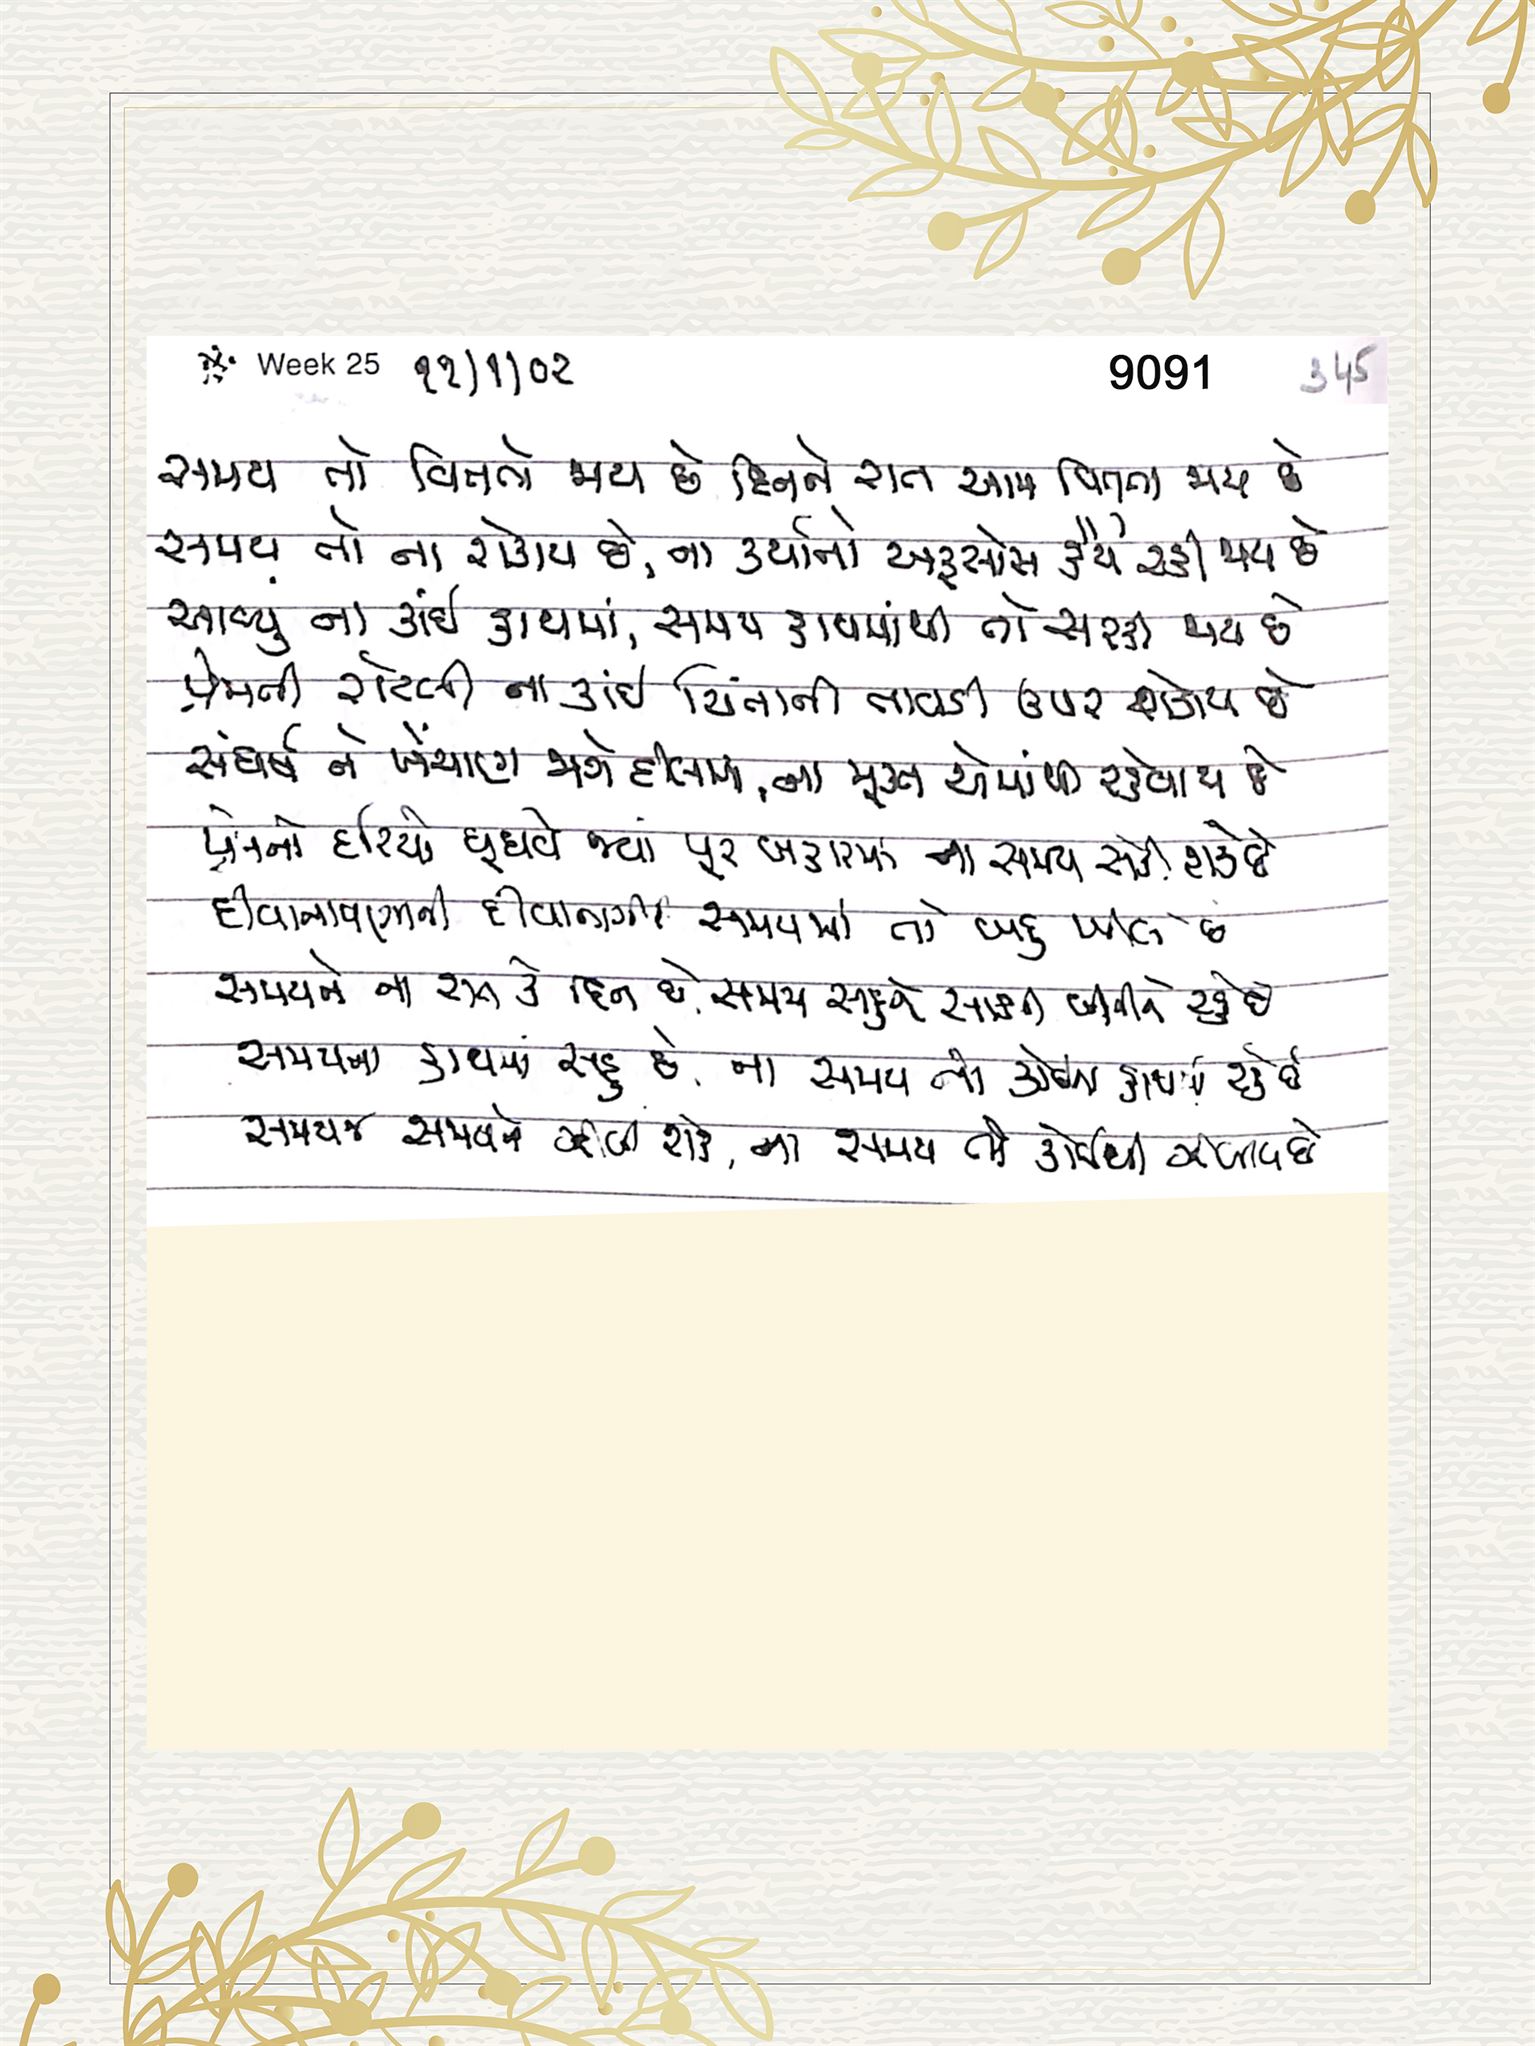 Week 25 ૧૧)૧)૦૨ 9091 345
સમય તો વિતતો જાય છે દિનને રાત આમ વિતતા જાય છે
સમય તો ના રોકાય છે, ના કર્યાનો અફસોસ હૈયે રહી જાય છે
આવ્યું ના કાંઈ હાથમાં, સમય હાથમાંથી તો સરકી જાય છે
પ્રેમની રોટલી ના કાંઈ ચિંતાની તાવડી ઉપર શેકાય છે
સંઘર્ષ ને ખેંચાણ જાગે દીલમાં, ના મૂક્ત એમાંથી રહેવાય છે
પ્રેમનો દરિયો ઘૂઘવે જ્યાં પૂર બહારમાં ના સમય રોકી શકે છે
દીવાનાપણાની દીવાનગી સમયમાં તો બહુ ખીલે છે
સમયને ના રાત કે દિન છે. સમય સહુને સાક્ષી બનીને રહે છે
સમયના હાથમાં સહુ છે. ના સમય તો કોઈના હાથમાં રહે છે
સમયજ સમયને ઝીલી શકે, ના સમય તો કોઈથી ઝીલાય છે